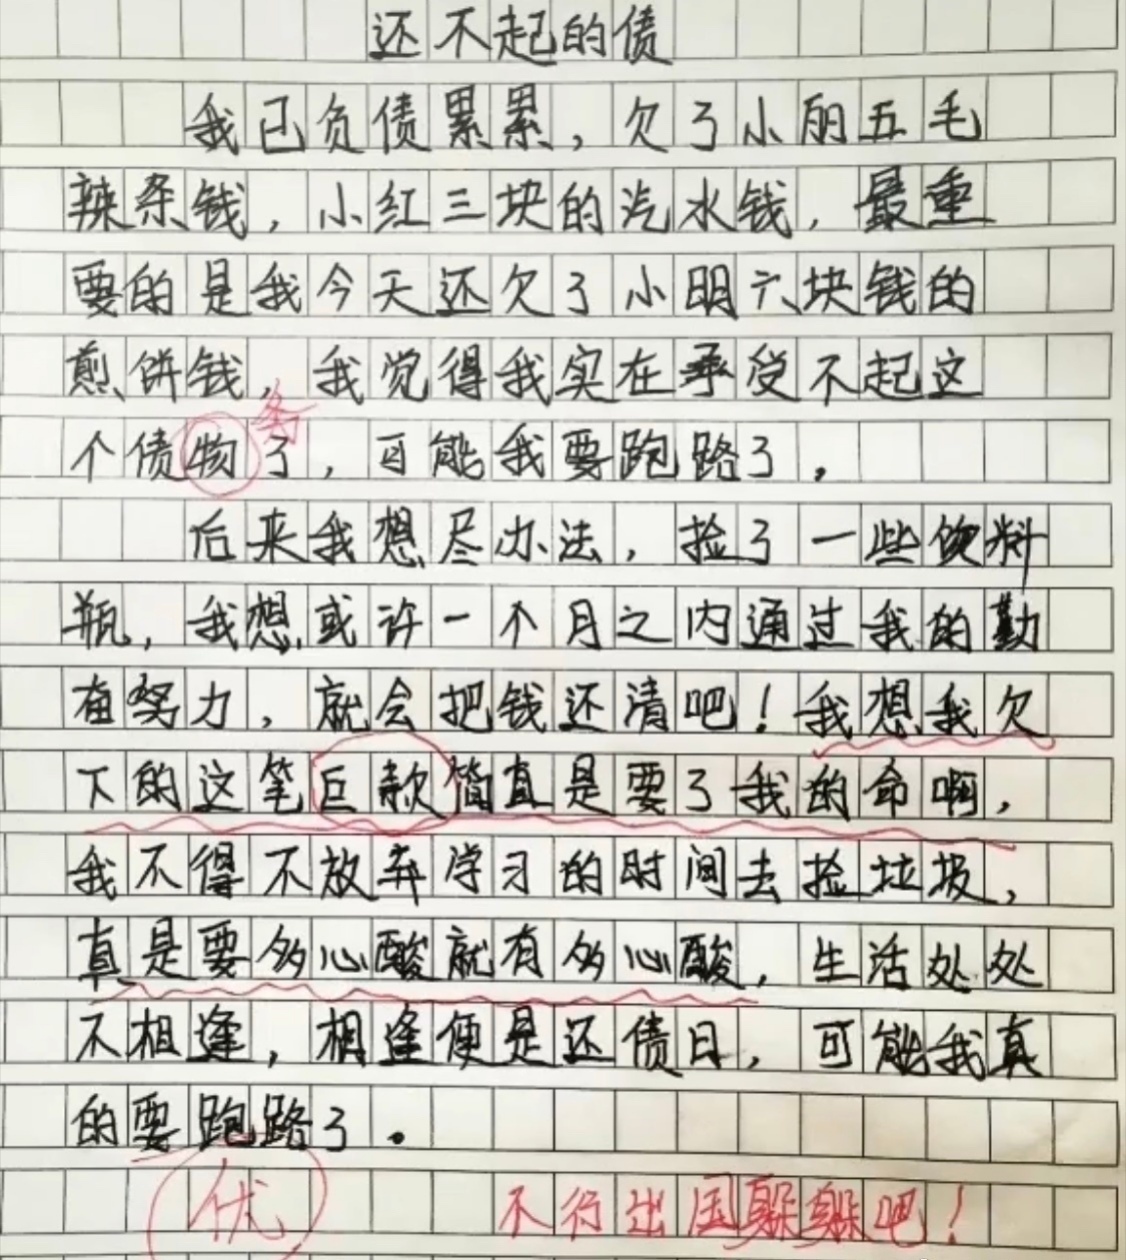 还不起的债
我已负债累累，欠了小丽五毛
辣条钱，小红三块的汽水钱，最重
要的是我今天还欠了小明六块钱的
煎饼钱，我觉得我实在承受不起这
个债物了，可能我要跑路了，
务
后来我想尽办法，捡了一些饮料
瓶，我想或许一个月之内通过我的勤
奋努力，就会把钱还清吧！我想我欠
下的这笔巨款简直是要了我的命啊，
我不得不放弃学习的时间去捡垃圾，
真是要多心酸就有多心酸，生活处处
不相逢，相逢便是还债日，可能我真
的要跑路了。
优
不行出国躲躲吧！